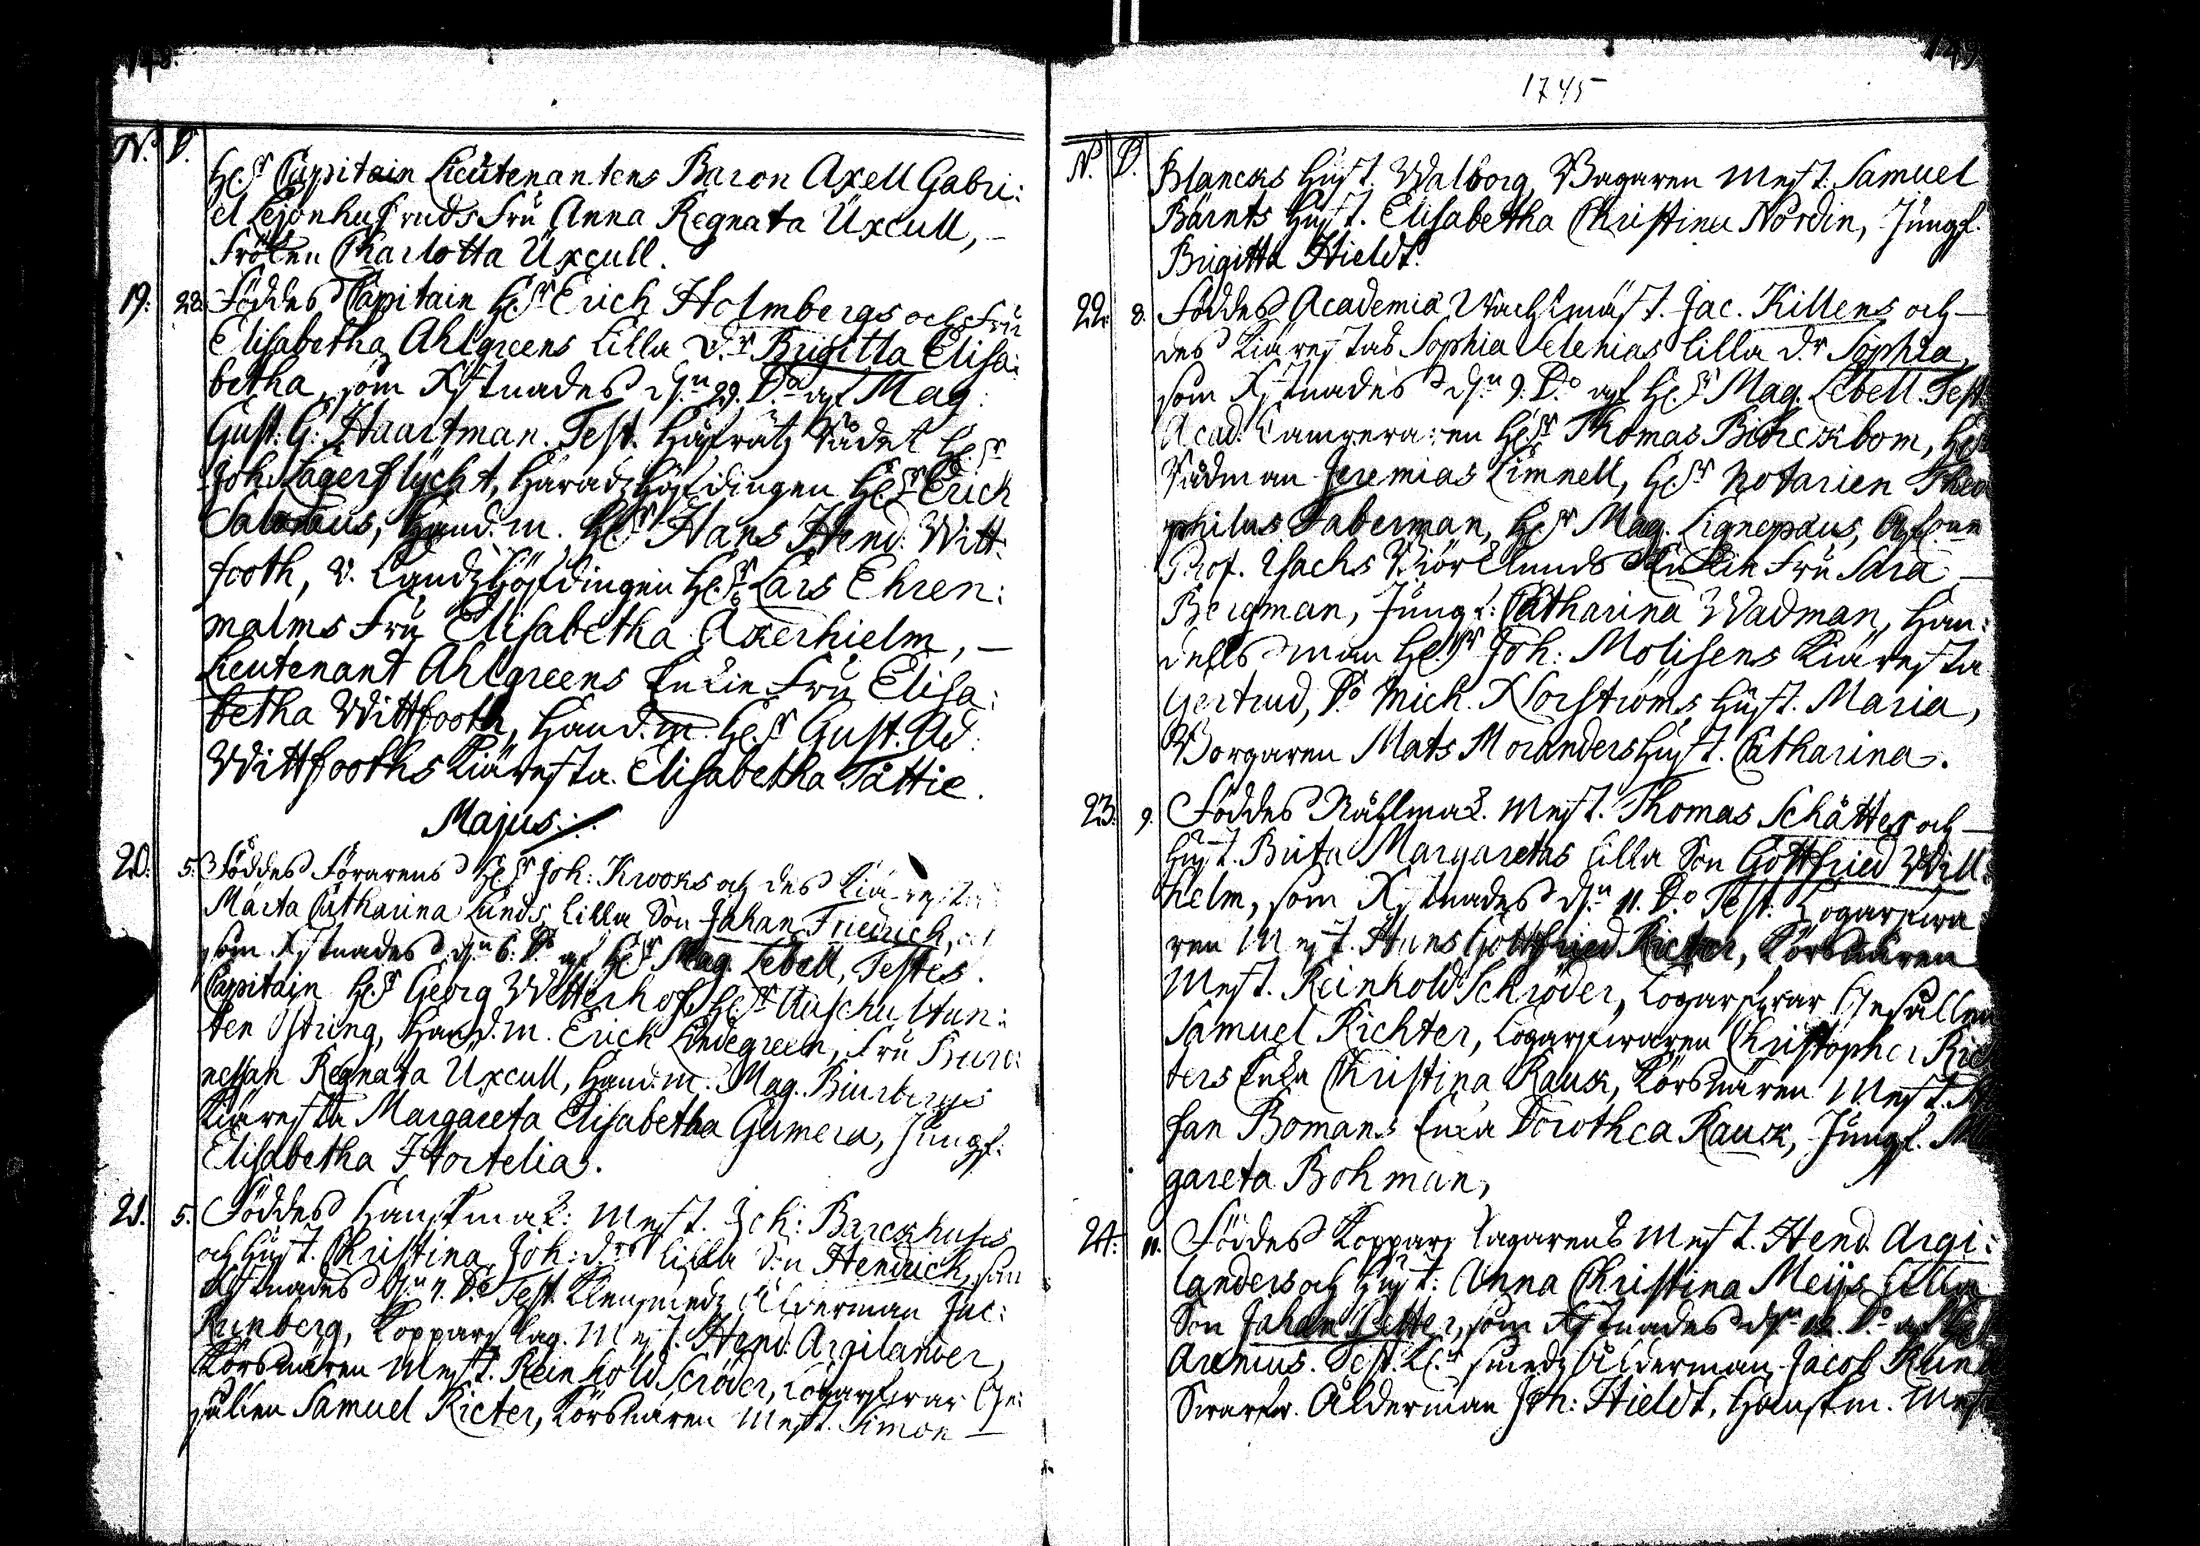 148.
N. D.
H:r Capitain Lieutenantens Baron Axell Gabri:
el Lejonhufvuds Fru Anna Regnata Üxcull,
Fröken Charlotta Üxcull.
19. 28. Föddes Capitain H:r Erich Holmbergs och Fru
Elisabetha Ahlgreens lilla d:r Brigitta Elisa:
betha, som Xstnades d:n 29. D:o af Mag.
Gust. G. Haartman. Test. Håfrätz Rådet H:r
Joh. Lagerflycht, Häradzhöfdingen H:r Erich
Salonius, Hand.m. H:r Hans Hend. Witt:
footh, v. Landzhöfdingen H:r Lars Ehren:
malms Fru Elisabetha Åkerhielm,
Lieutenant Ahlgreens Enkie Fru Elisa:
betha Wittfooth, Hand.m. H:r Gust. Ad.
Wittfooths Kiäresta Elisabetha Tåttie.
Majus
20. 5. Föddes Förarens H:r Joh: Krooks och des Kiäresta
Märta Catharina Lunds lilla Son Johan Friedrich,
som Xstnades d:n 6. D:o af H:r Mag. Lebell, Testes.
Capitain H:r Georg Wetterhof, H:r Auscultan:
ten Östring, Hand.m. Erick Lindegreen, Fru Baro:
nessan Regnata Üxcull, Hand.m. Mag. Biurbergs
Kiäresta Margareta Elisabetha Gumera, Jungf.
Elisabetha Hortelia.
21. 5. Föddes Hanskmak: Mest. Joh: Barckhuses
och Hust. Christina Joh: d:rs lilla Son Hendrich, som
Xstnades d:n 7. D:o Test. Klensmedz Ålderman Jac:
Runberg, Kopparslag. Mest. Hend. Argilander,
Körsnären Mest. Reinhold Scröder, Logarfvar Ge:
sällen Samuel Ricter, Körsnären Mest. Simon
149
1745
N. D.
Blancks Hust. Walborg, Bagaren Mest. Samuel
Bärnts Hust. Elisabetha Christina Nordin, Jungf.
Brigitta Hieldt.
22. 8. Föddes Academiæ Wachtmäst. Jac. Killens och
des Kiärestas Sophia Selenias lilla d:r Sophia,
som Xstnades d:n 9. D:o af H:r Mag. Lebell. Test.
Acad. Camereraren H:r Thomas Biörckbom,
Rådman Jeremias Limnell, H:r Notarien Theo
philus Faberman, H:r Mag. Lignepæus,
Prof. Isachs Biörklunds Enkie Fru Sara
Bergman, Jungf: Catharina Wadman, Han:
dels man H:r Joh: Molisens Kiäresta
Gertrud, D:o Mich. Norströms Hust. Maria,
Borgaren Mats Moranders Hust. Catharina.
23. 9. Föddes Nåhlmak. Mest. Thomas Schätter och
Hust. Brita Margaretas lilla Son Gottfried Will:
helm, som Xstnades d:n 11. D:o Test. Logarfva
ren Mest. Hans Gottfried Ricter, Körsnären
Mest. Reinhold Schröder, Logarfvar Gesällen
Samuel Richter, Logarfvaren Christopher Ric
ters Enka Christina Rauk, Körsnären Mest.
fan Bomans Enka Dorothea Rauk, Jungf.
gareta Bohman,
24. 11. Föddes Kopparslagarens Mest. Hend. Argi:
landers och Hust: Anna Christina Meijs lilla
Son Johan Petter, som Xstnades d:n 12. D:o af
Arenius. Test. Kl. smedz Ålderman Jacob Run
Swarfw. Ålderman Joh: Hieldt, Hanskm. Mest